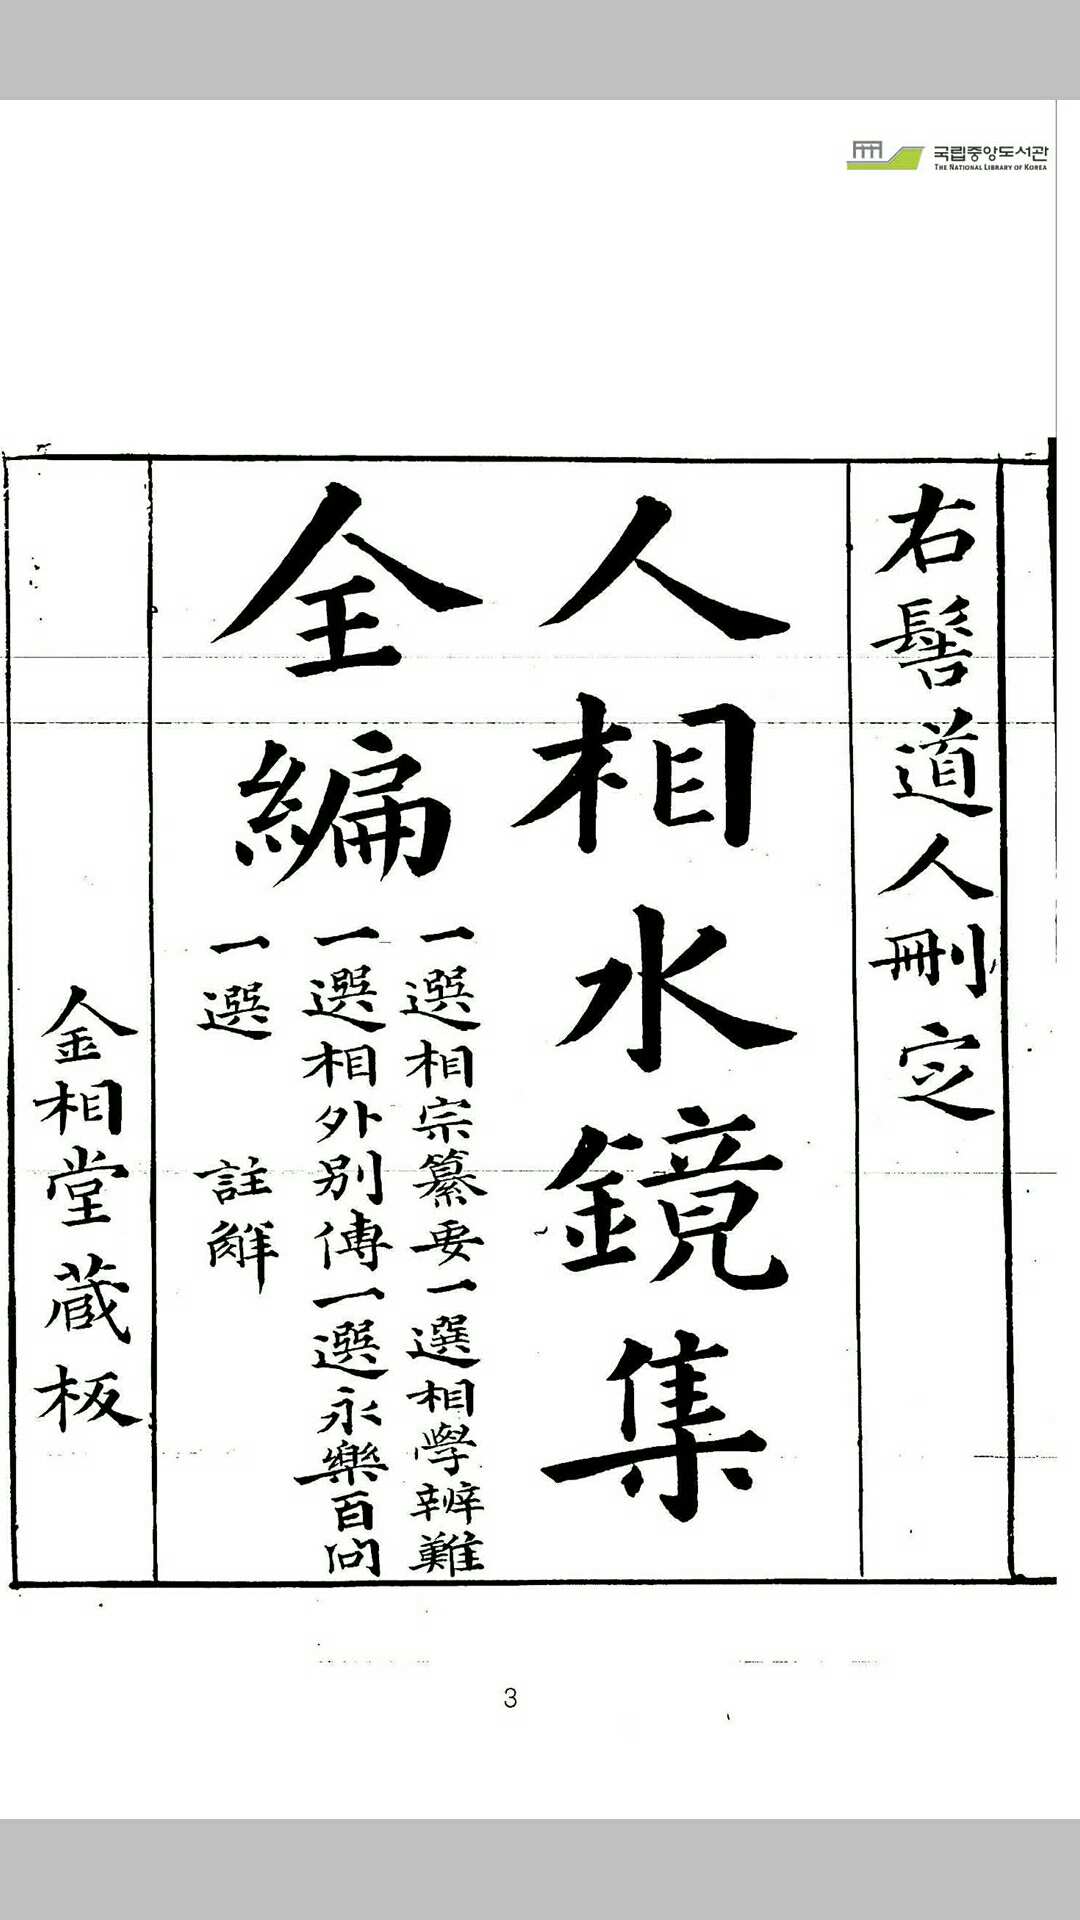 국립중앙도서관
THE NATIONAL LIBRARY OF KOREA
右髻道人刪定
人相水鏡集
全編
一選相宗纂要一選相學辨難
一選相外別傳一選永樂百問
一選 註觧
金相堂蔵板
3